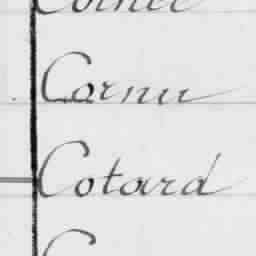 Cornu
Cotard